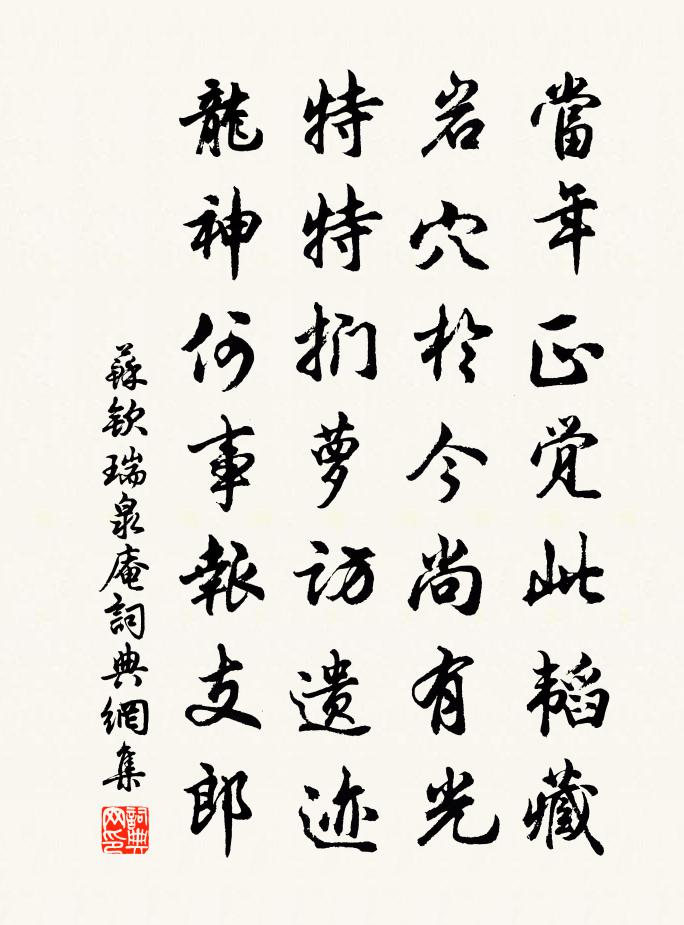 當年正觉此韬藏
岩穴於今尚有光
特特扪萝访遗迹
龍神何事報支郎
蘇欽瑞泉庵詞典網集
詞典网印